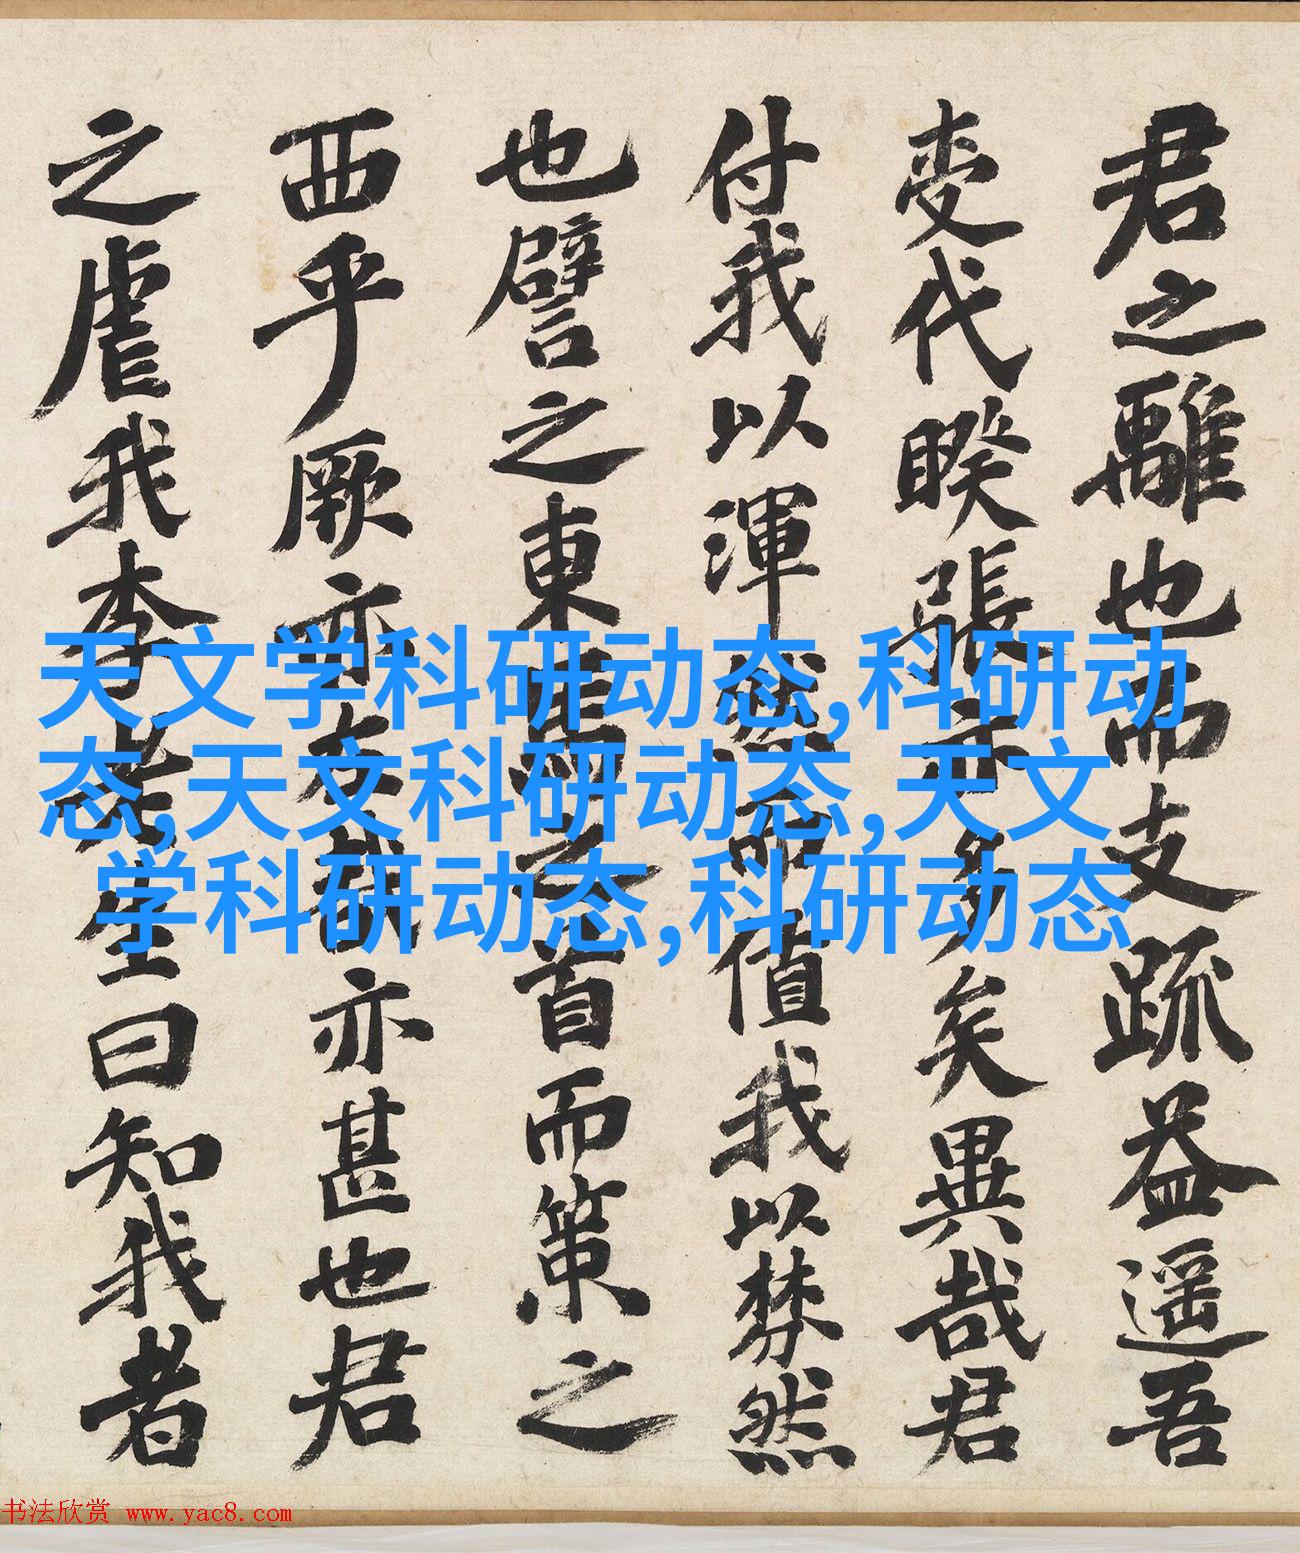 君之離也而支疏益遥吾
变代睽張 多矣異哉君
付我以渾然而值我以棼然
也譬之東馬之首而策之
西乎厥亦左哉亦甚也君
之虐我李老生曰知我者
天文学科研动态,科研动
态,天文科研动态,天文
学科研动态,科研动态
书法欣赏 www.yac8.com